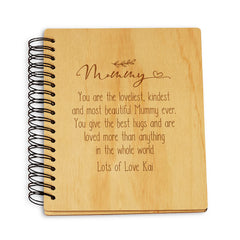 Mummy
You are the loveliest, kindest
and most beautiful Mummy ever.
You give the best hugs and are
loved more than anything
in the whole world.
Lots of Love Kai